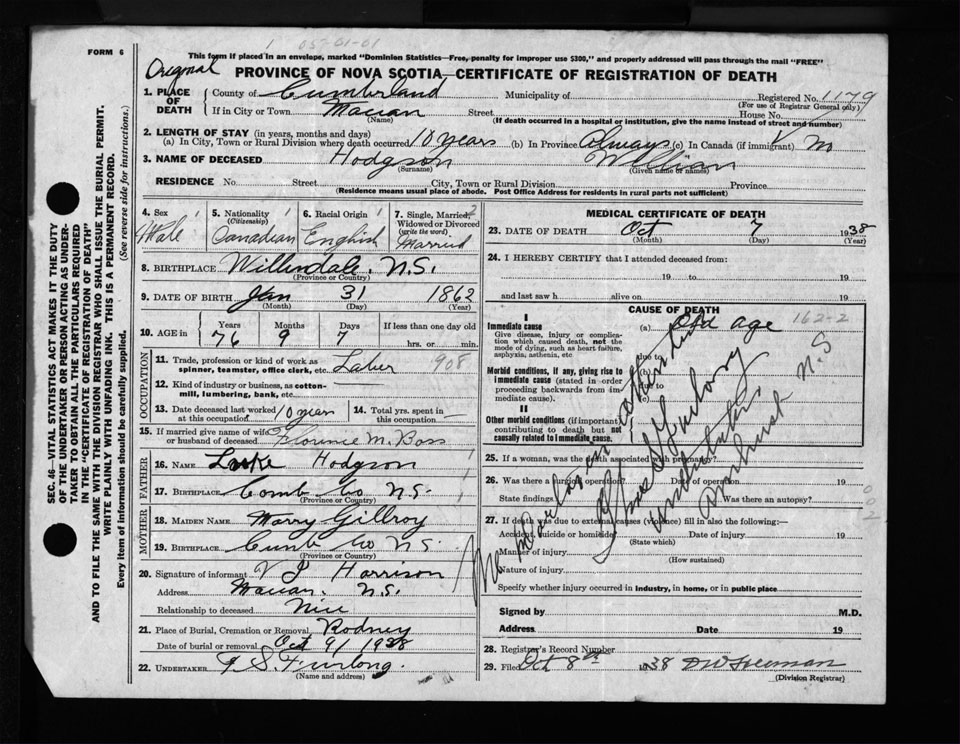 FORM 6
1 057-01-01
This form if placed in an envelope, marked "Dominion Statistics—Free, penalty for improper use $300," and properly addressed will pass through the mail "FREE"
Original
PROVINCE OF NOVA SCOTIA—CERTIFICATE OF REGISTRATION OF DEATH
1. PLACE OF DEATH County of Cumberland Municipality of Registered No. 1179
(For use of Registrar General only)
If in City or Town Maccan Street House No.
(Name) (If death occurred in a hospital or institution, give the name instead of street and number)
2. LENGTH OF STAY (in years, months and days)
(a) In City, Town or Rural Division where death occurred 10 years (b) In Province Always (c) In Canada (if immigrant) No
3. NAME OF DECEASED Hodgson William
(Surname) (Given name or names)
RESIDENCE No. Street City, Town or Rural Division Province
(Residence means usual place of abode. Post Office Address for residents in rural parts not sufficient)
4. Sex Male
5. Nationality (Citizenship) Canadian
6. Racial Origin English
7. Single, Married, Widowed or Divorced (write the word) Married
8. BIRTHPLACE N.S.
(Province or Country)
9. DATE OF BIRTH Jan 31 1862
(Month) (Day) (Year)
10. AGE in Years Months Days If less than one day old
76 9 7 hrs. or min.
OCCUPATION
11. Trade, profession or kind of work as spinner, teamster, office clerk, etc. Laber 908
12. Kind of industry or business, as cotton-mill, lumbering, bank, etc.
13. Date deceased last worked at this occupation 10 years
14. Total yrs. spent in this occupation —
15. If married give name of wife or husband of deceased Florence M. Boss
FATHER
16. NAME Luke Hodgson
17. BIRTHPLACE Comb Co N.S.
(Province or Country)
MOTHER
18. MAIDEN NAME Marry Gillroy
19. BIRTHPLACE Cumb Co N.S.
(Province or Country)
20. Signature of informant V J Harrison
Address Maccan. N.S.
Relationship to deceased
21. Place of Burial, Cremation or Removal Rodney
Date of burial or removal Oct 9 1938
22. UNDERTAKER F S. Furlong.
(Name and address)
MEDICAL CERTIFICATE OF DEATH
23. DATE OF DEATH Oct 7 1938
(Month) (Day) (Year)
24. I HEREBY CERTIFY that I attended deceased from:
19 to 19
and last saw h alive on 19
CAUSE OF DEATH
I
Immediate cause (a) Old age 162-2
Give disease, injury or complication which caused death, not the mode of dying, such as heart failure, asphyxia, asthenia, etc
due to
Morbid conditions, if any, giving rise to immediate cause (stated in order proceeding backwards from immediate cause)
(b)
due to
(c)
II
Other morbid conditions (if important) contributing to death but not causally related to immediate cause.
No Doctor in attention
F S Furlong
undertaker
Amherst N.S
25. If a woman, was the death associated with pregnancy?
26. Was there a surgical operation? Date of operation 19
State findings Was there an autopsy?
002
27. If death was due to external causes (violence) fill in also the following:—
Accident, suicide or homicide Date of injury 19
(State which)
Manner of injury
(How sustained)
Nature of injury
Specify whether injury occurred in industry, in home, or in public place
Signed by M.D.
Address Date 19
28. Registrar's Record Number
29. Filed Oct 8th 1938 D W Freeman
(Division Registrar)
SEC. 46—VITAL STATISTICS ACT MAKES IT THE DUTY
OF THE UNDERTAKER OR PERSON ACTING AS UNDER-
TAKER TO OBTAIN ALL THE PARTICULARS REQUIRED
IN THE "CERTIFICATE OF REGISTRATION OF DEATH"
AND TO FILE THE SAME WITH THE DIVISION REGISTRAR WHO SHALL ISSUE THE BURIAL PERMIT.
WRITE PLAINLY WITH UNFADING INK. THIS IS A PERMANENT RECORD.
Every item of information should be carefully supplied. (See reverse side for instructions.)